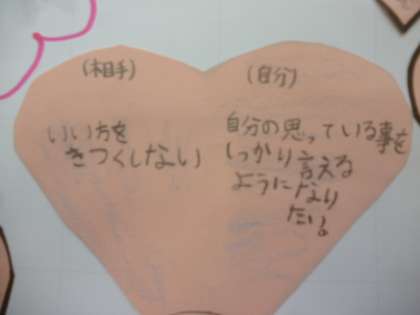 (相手)
いい方を
きつくしない
(自分)
自分の思っている事を
しっかり言える
ようになり
たい。